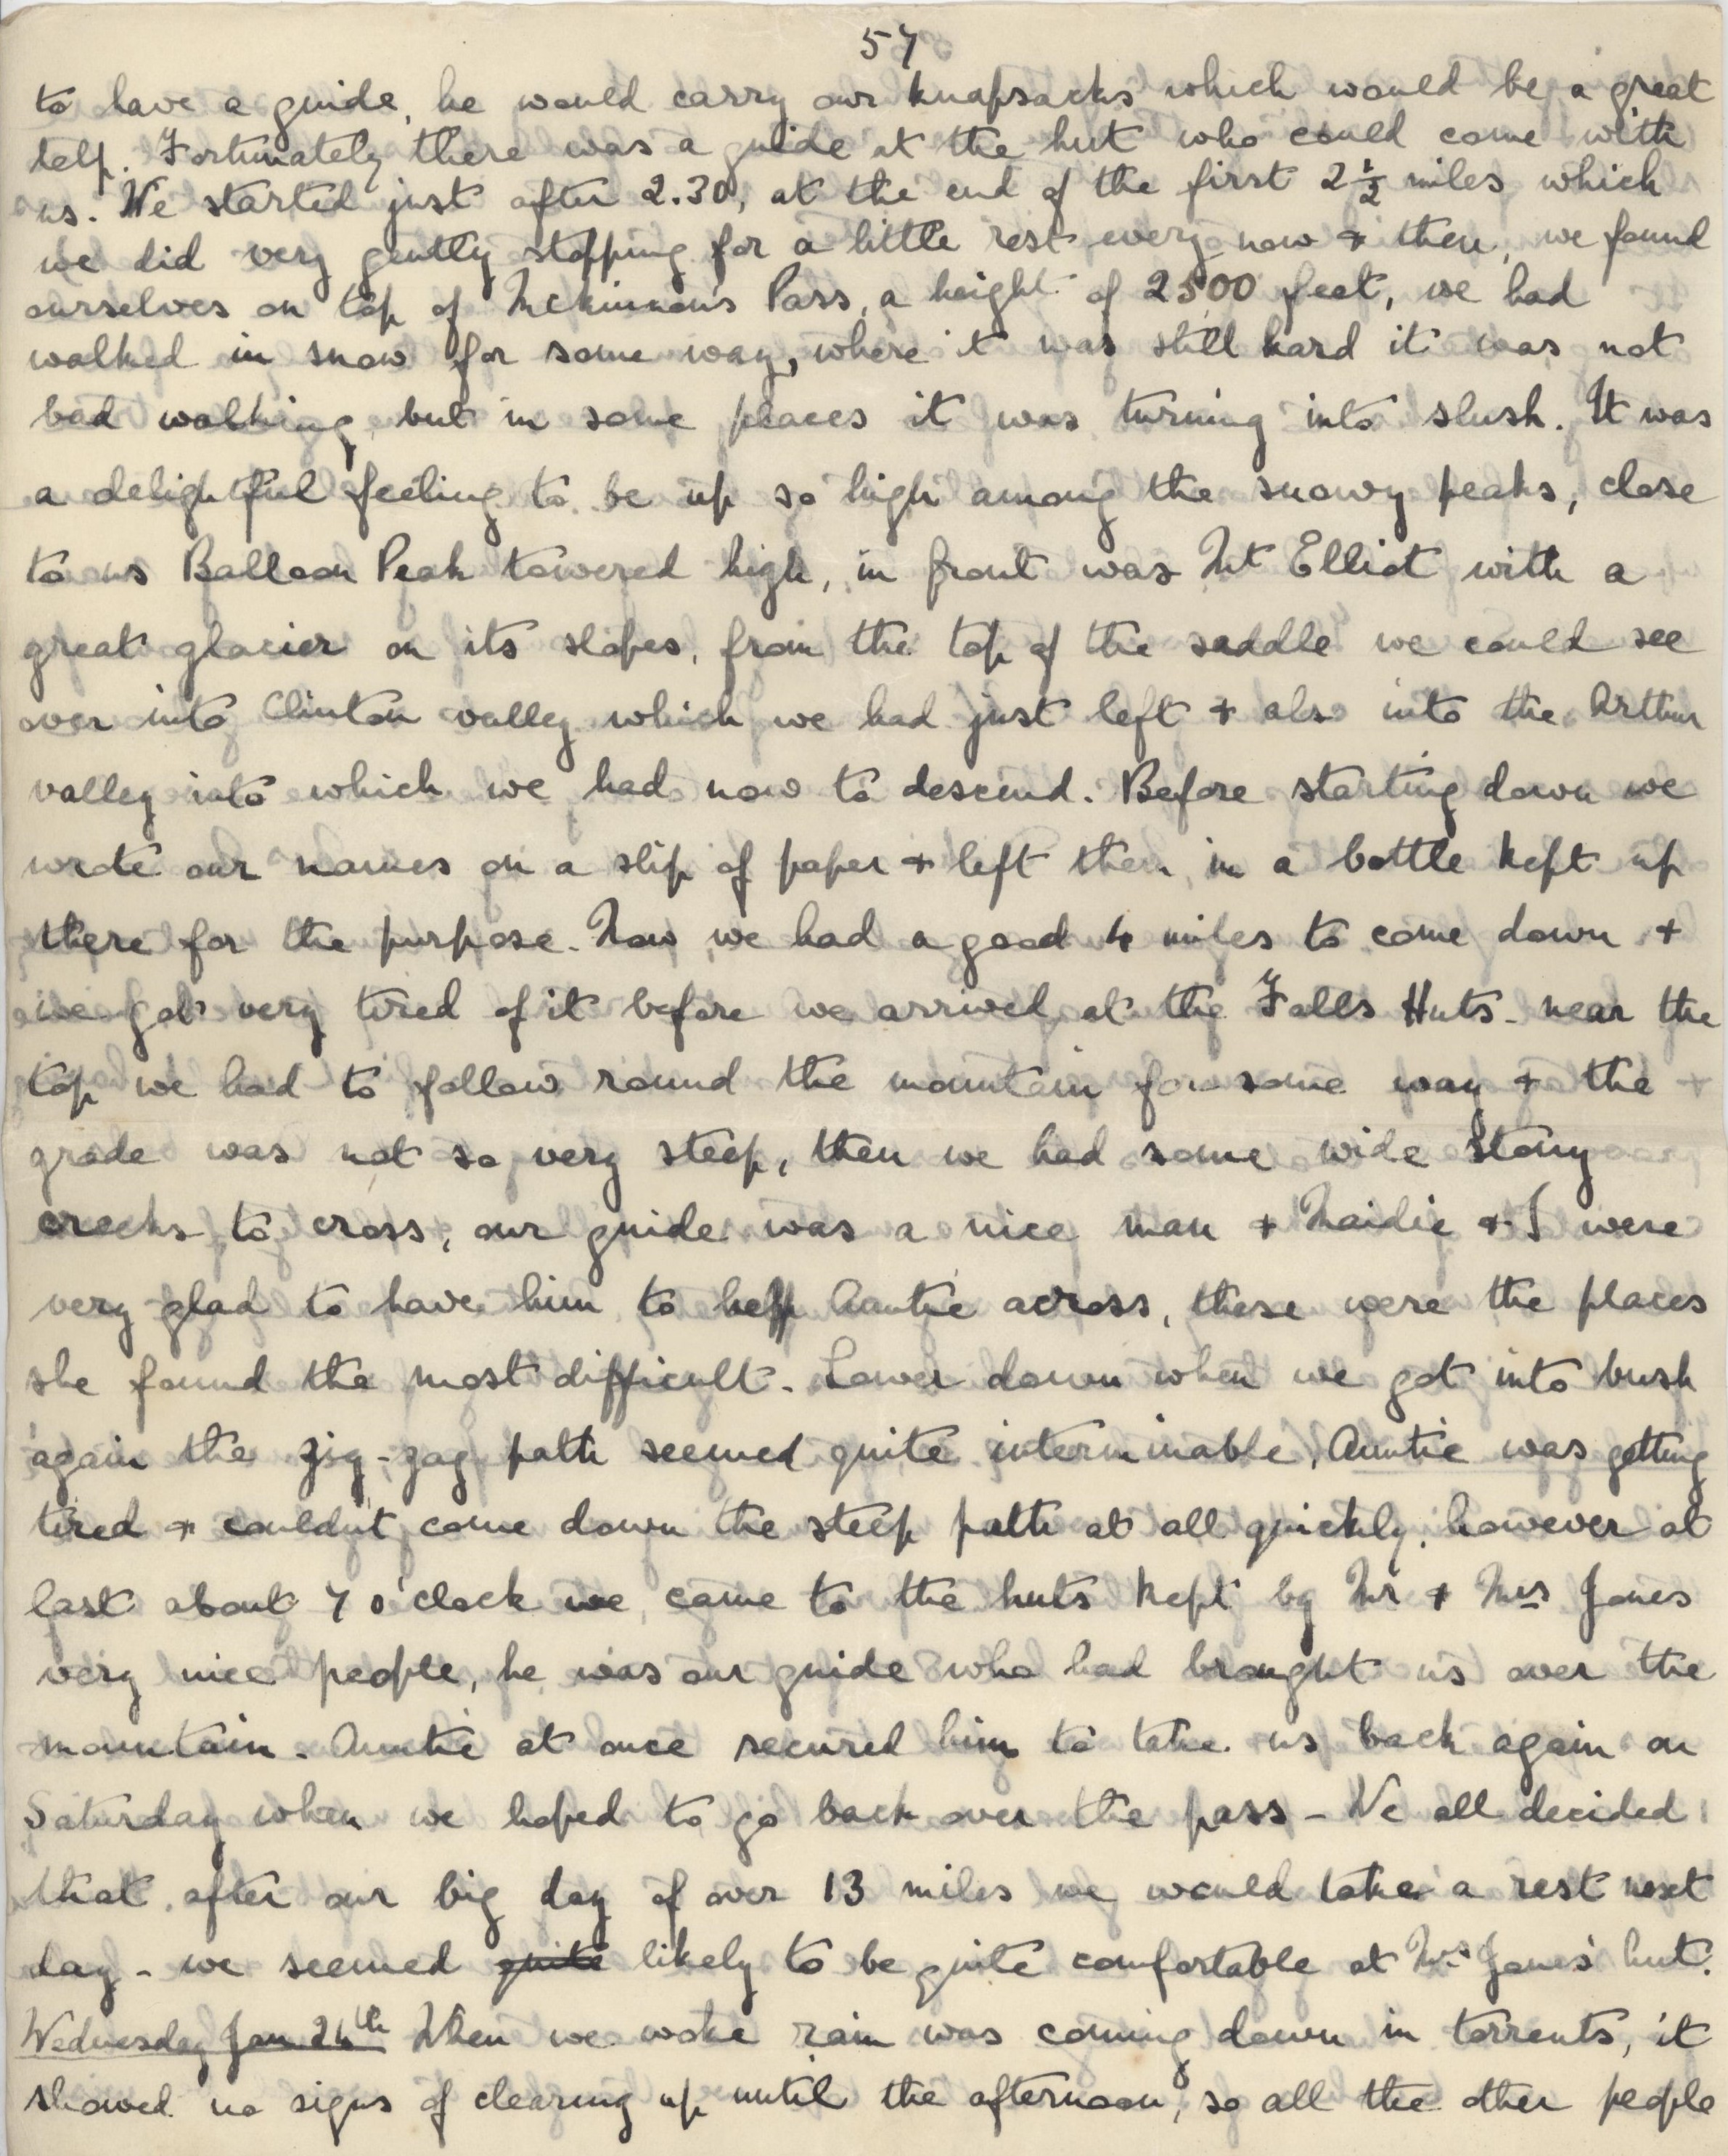 57
to have a guide, he would carry our knapsacks which would be a great
help. Fortunately there was a guide at the hut who could come with
us. We started just after 2.30, at the end of the first 2½ miles which
we did very gently stopping for a little rest every now + then, we found
ourselves on top of McKinnon's Pass, a height of 2500 feet, we had
walked in snow for some way, where it was still hard it was not
bad walking, but in some places it was turning into slush. It was
a delightful feeling to be up so high among the snowy peaks, close
to us Balloon Peak towered high, in front was Mt Elliot with a
great glacier on its slopes, from the top of the saddle we could see
over into Clinton valley which we had just left + also into the Arthur
valley into which we had now to descend. Before starting down we
wrote our names on a slip of paper + left them in a bottle kept up
there for the purpose. Now we had a good 4 miles to come down +
we got very tired of it before we arrived at the Falls Huts - near the
top we had to follow round the mountain for some way + the
grade was not so very steep, then we had some wide stony
creeks to cross, our guide was a nice man + Maidie + I were
very glad to have him to help Auntie across, these were the places
she found the most difficult. Lower down when we got into bush
again the zig-zag path seemed quite interminable, Auntie was getting
tired + couldn't come down the steep path at all quickly, however at
last about 7 o'clock we came to the huts kept by Mr + Mrs Jones
very nice people, he was our guide who had brought us over the
mountain. Auntie at once secured him to take us back again on
Saturday when we hoped to go back over the pass - We all decided
that after our big day of over 13 miles we would take a rest next
day - we seemed quite likely to be quite comfortable at Mrs Jones' hut.
Wednesday Jan 26th When we woke rain was coming down in torrents, it
showed no signs of clearing up until the afternoon, so all the other people